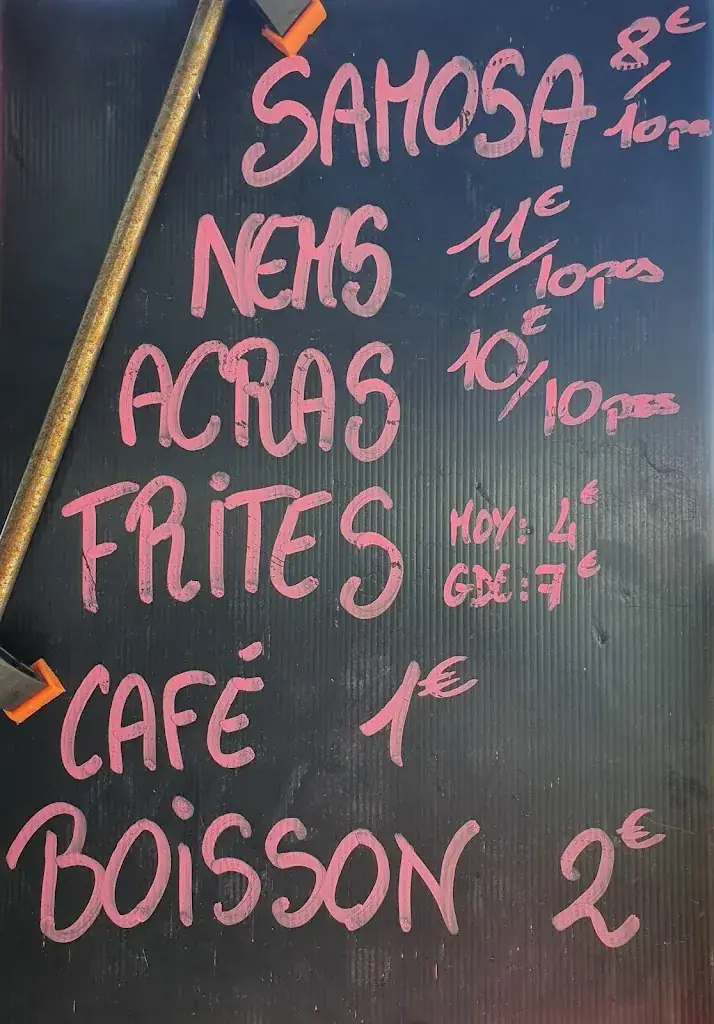 SAMOSA 8€/10pcs
NEMS 11€/10pcs
ACRAS 10€/10pces
FRiTES MOY: 4€
GDE: 7€
CAFÉ 1€
BOiSSON 2€